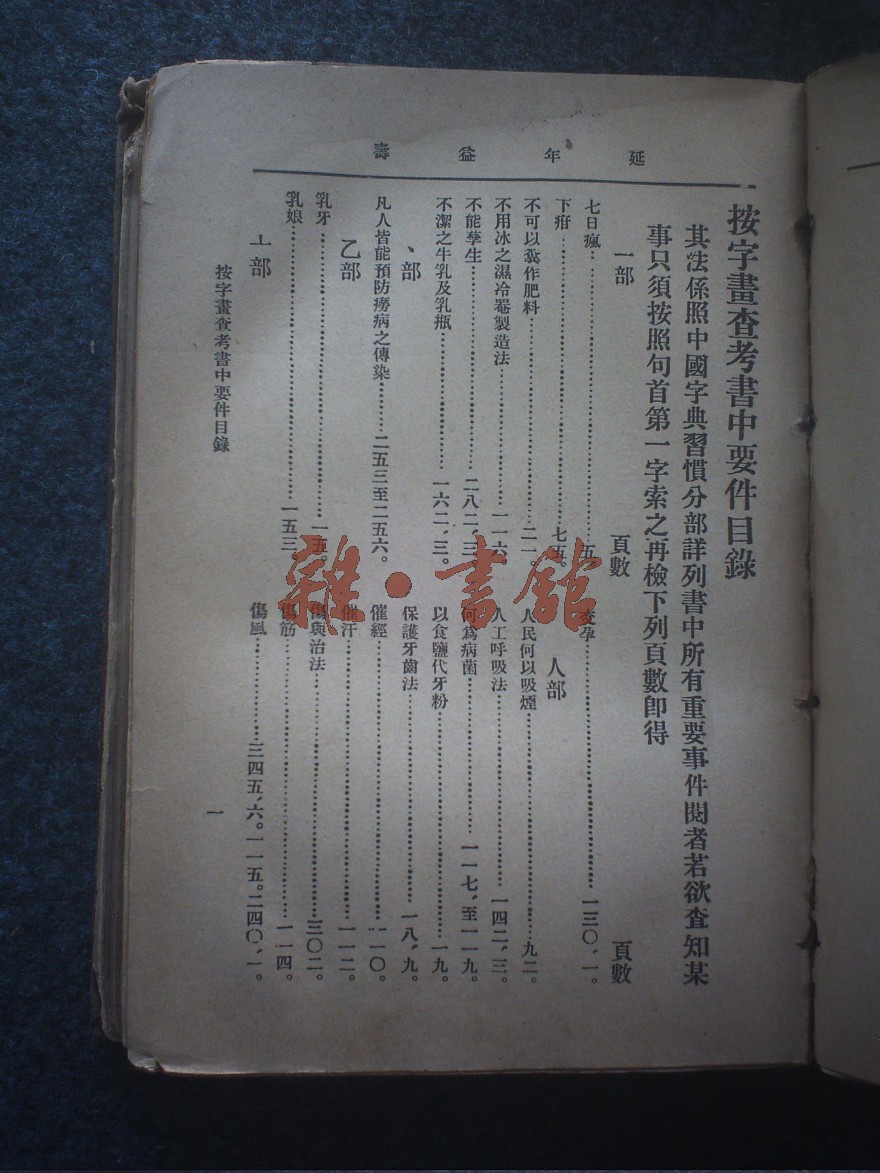 延年益壽
按字畫查考書中要件目錄
其法係照中國字典習慣分部詳列書中所有重要事件閱者若欲查知某
事只須按照句首第一字索之再檢下列頁數卽得
一部 頁數
七日瘋……五
下疳……七五。
不可以糞作肥料……二一
不用冰之濕冷罨製造法……一一六
不能孳生……二八二、三。
不潔之牛乳及乳瓶……一六二、三。
丶部
凡人皆能預防癆病之傳染……二五三至二五六。
乙部
乳牙……一五。
乳娘……一五三
亠部
頁數
交孕……一三〇、一。
人部
人民何以吸煙……九二。
人工呼吸法……一四二、三。
何爲病菌……一一七、至一一九。
以食鹽代牙粉……一九。
保護牙齒法……一八、九。
催經……一一〇。
催汗……一一二。
傷與治法……三〇二。
傷筋……一一四。
傷風……三四五、六。一一五。二四〇、一。
按字畫查考書中要件目錄 一
雜·書館